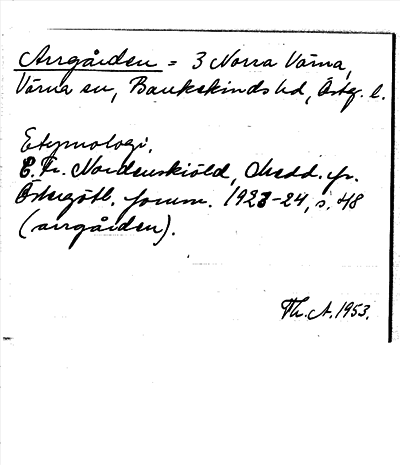 Arrgården = 3 Norra Vårna,
Vårna sn, Bankekinds hd, Östg. l.
Etymologi.
C. Fr. Nordenskiöld, Medd. fr.
Östergötl. fornm. 1923-24, s. 48
(arrgården).
Th. A. 1953.